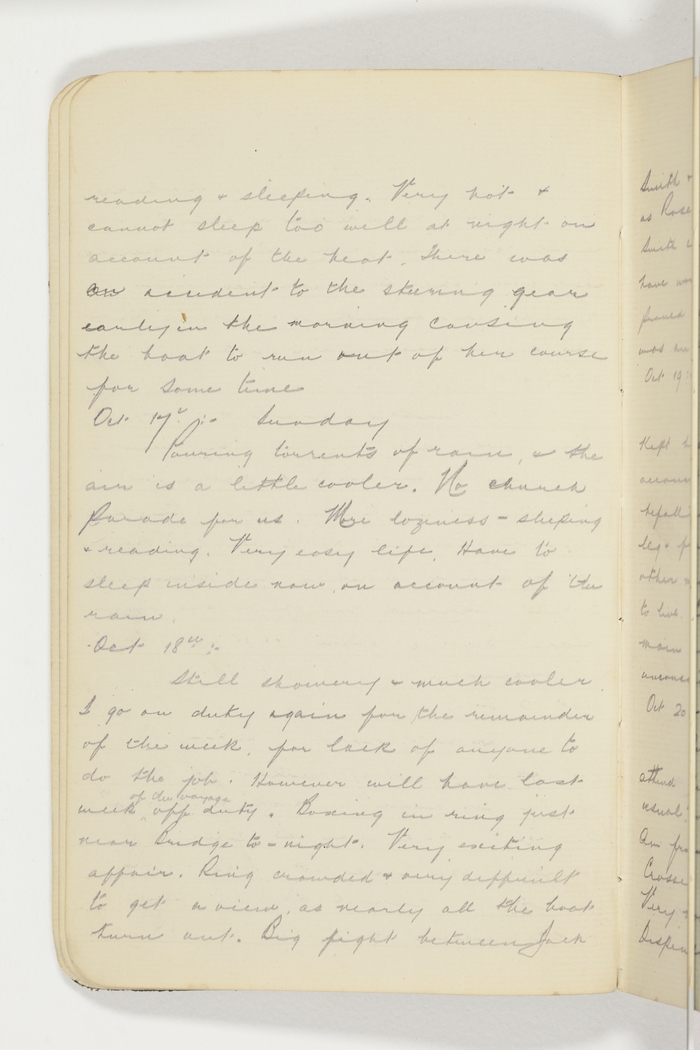 reading & sleeping. Very hot &
cannot sleep too well at night on
account of the heat. There was
an accident to the steering gear
early in the morning causing
the boat to run out of her course
for some time
Oct 17th :- Sunday
Pouring torrents of rain, & the
air is a little cooler. No church
Parade for us. More laziness - sleeping
& reading. Very easy life. Have to
sleep inside now, on account of the
rain.
Oct 18th :-
Still showery & much cooler
I go on duty again for the remainder
of the week, for lack of anyone to
do the job. However will have last
week of the voyage off duty. Boxing in ring just
near Bridge to-night. Very exciting
affair. Ring crowded & very difficult
to get a view, as nearly all the boat
turn out. Big fight between Jack
Smith &
as Rose
Smith
have
Oct 19
Kept
other
to
main
Oct 20
attend
usual.
Very